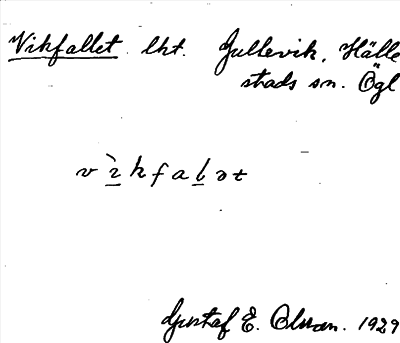 Vikfallet lht. Gullevik, Hälle
strads sn. Ögl
v ı̀ k f a l ə t
Gustaf E. Olsson. 1929